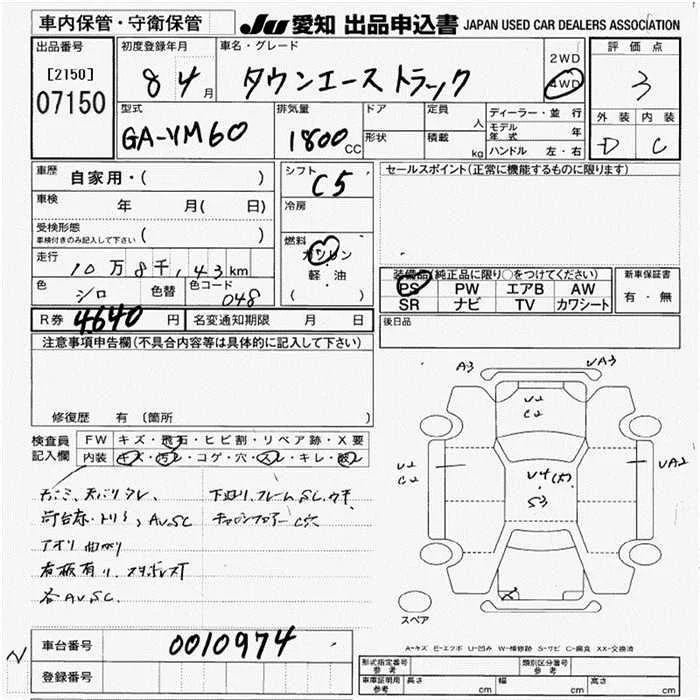 車内保管・守衛保管 JU 愛知 出品申込書 JAPAN USED CAR DEALERS ASSOCIATION
出品番号 初度登録年月 車名・グレード 2WD 評価点
[2150] 8 4月 タウンエーストラック 4WD 3
07150
型式 排気量 ドア 定員 人 ディーラー・並行 外装 内装
GA-YM60 1800CC 形状 積載 kg モデル年式 年 D C
ハンドル 左・右
車歴 自家用・( ) シフト C5 セールスポイント(正常に機能するものに限ります)
車検 年 月( 日) 冷房
受検形態 ( )
車検付きのみ記入して下さい
燃料 ガソリン
走行 10万8千143km 軽・油
装備品(純正品に限り○をつけてください) 新車保証書
色 シロ 色替 色コード 048 ( )
PS PW エアB AW 有・無
SR ナビ TV カワシート
R券 4640 円 名変通知期限 月 日 後日品
注意事項申告欄(不具合内容等は具体的に記入して下さい)
修復歴 有 (箇所
検査員記入欄 FW キズ・飛石・ヒビ割・リペア跡・X要
内装 キズ・汚レ・コゲ・穴・スレ・キレ・
A3 UA3
U2
C2
U2
C2
UA2
U4
S3
X
スペア
A-キズ E-エクボ U-凹み W-補修跡 S-サビ C-腐食 XX-交換済
車台番号 0010974
登録番号
型式指定番号 参考 類別区分番号 参考
車庫証明用 参考 長さ cm 幅 cm 高さ cm